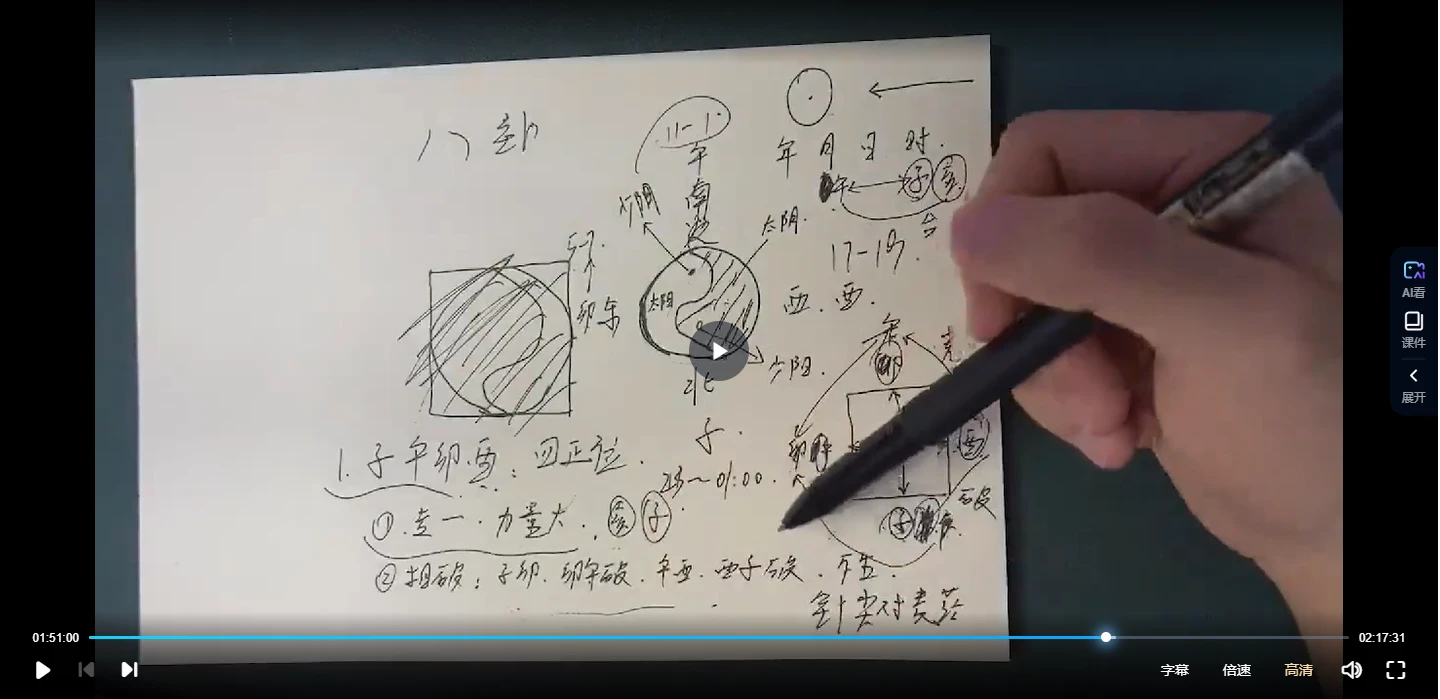 八卦
11-1
午
南
少阴
太阴
太阳
少阳
北
子
23~01:00
年 月 日 时
午 子 亥
合
17-19
酉 酉
5-7
卯东
午
卯
克
酉
子
破
1. 子午卯酉：四正位
① 专一 力量大 亥 子
② 相破：子卯 卯午破 午酉 酉子破 不生
针尖对麦芒
AI看
课件
展开
01:51:00
02:17:31
字幕
倍速
高清